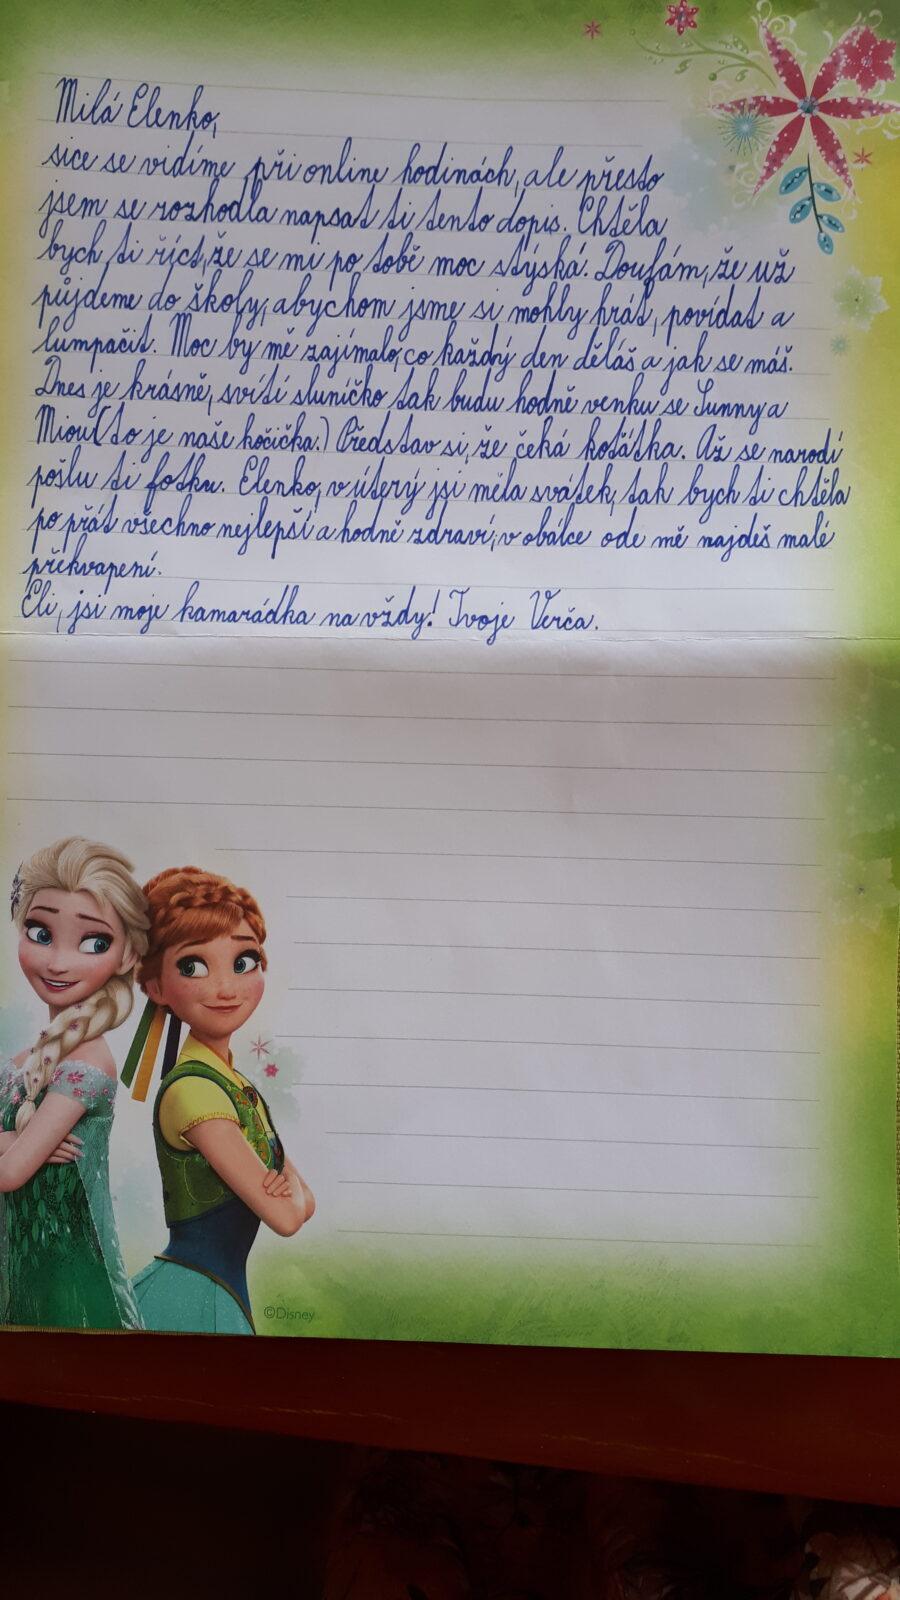 Milá Elenko,
sice se vidíme při online hodinách, ale přesto
jsem se rozhodla napsat ti tento dopis. Chtěla
bych ti říct, že se mi po tobě moc stýská. Doufám, že už
půjdeme do školy, abychom jsme si mohly hrát, povídat a
lumpačit. Moc by mě zajímalo, co každý den děláš a jak se máš.
Dnes je krásně, svítí sluníčko tak budu hodně venku se Sunny a
Miou (to je naše kočička.) Představ si, že čeká koťátka. Až se narodí
pošlu ti fotku. Elenko, v úterý jsi měla svátek, tak bych ti chtěla
po přát všechno nejlepší a hodně zdraví, v obálce ode mě najdeš malé
překvapení.
Eli, jsi moje kamarádka na vždy! Tvoje Verča.
©Disney